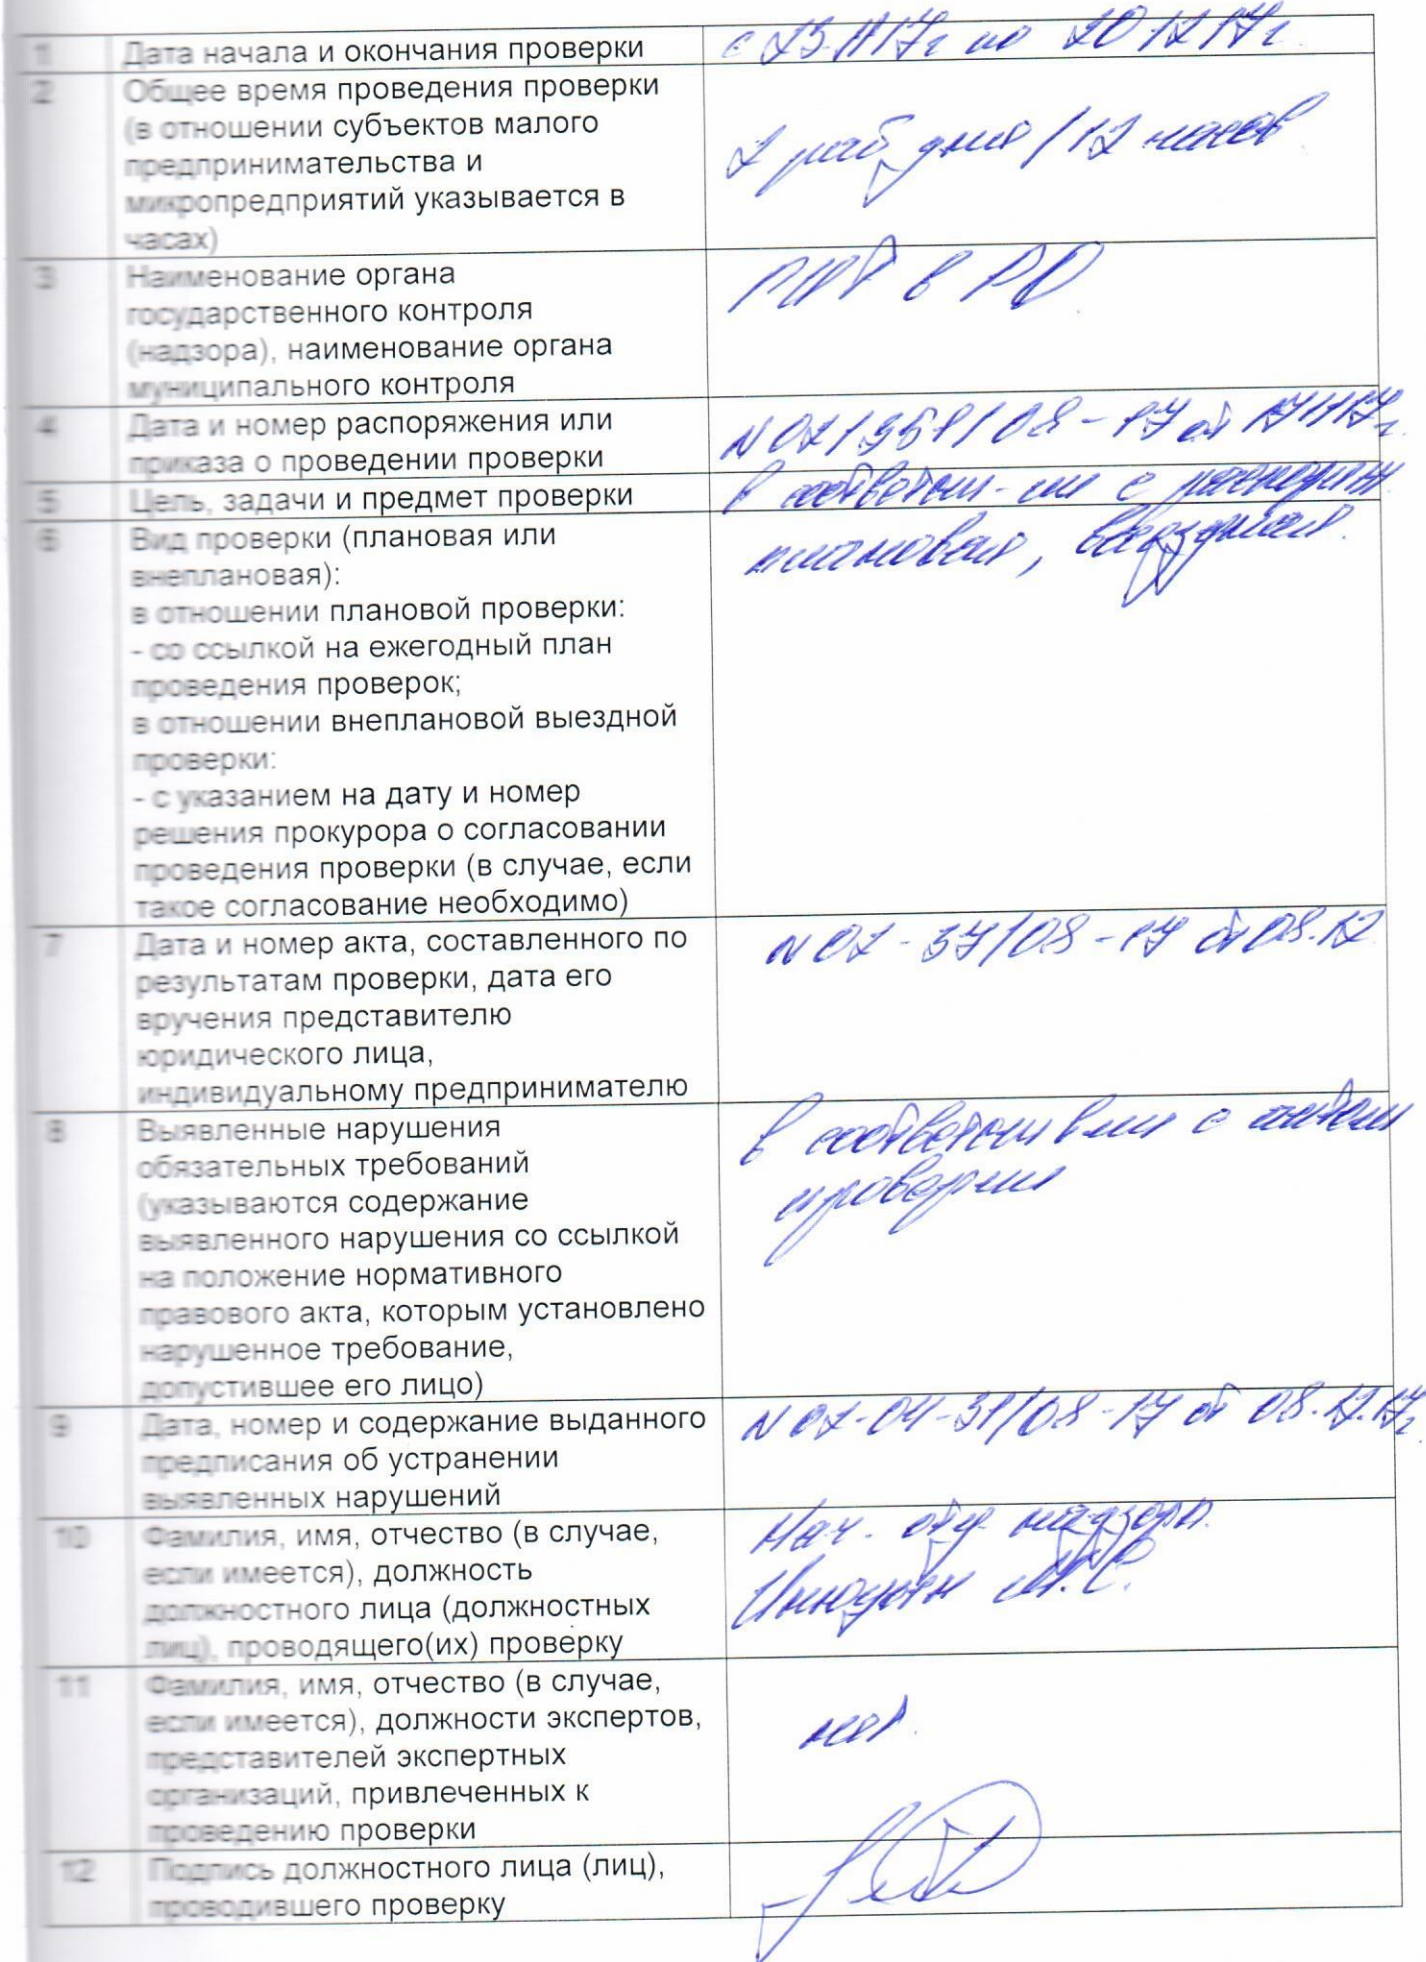 1 Дата начала и окончания проверки с 23.11.17г по 20.12.17г.
2 Общее время проведения проверки
(в отношении субъектов малого
предпринимательства и
микропредприятий указывается в
часах)
2 раб дня / 12 часов
3 Наименование органа
государственного контроля
(надзора), наименование органа
муниципального контроля
ГИТ в РО
4 Дата и номер распоряжения или
приказа о проведении проверки
от 17.11.17г.
5 Цель, задачи и предмет проверки в соответств-ии с распоряж.
6 Вид проверки (плановая или
внеплановая):
в отношении плановой проверки:
- со ссылкой на ежегодный план
проведения проверок;
в отношении внеплановой выездной
проверки:
- с указанием на дату и номер
решения прокурора о согласовании
проведения проверки (в случае, если
такое согласование необходимо)
плановая, выездная.
7 Дата и номер акта, составленного по
результатам проверки, дата его
вручения представителю
юридического лица,
индивидуальному предпринимателю
N 02-37/08-17 от 08.12
8 Выявленные нарушения
обязательных требований
(указываются содержание
выявленного нарушения со ссылкой
на положение нормативного
правового акта, которым установлено
нарушенное требование,
допустившее его лицо)
в соответствии с актом
проверки
9 Дата, номер и содержание выданного
предписания об устранении
выявленных нарушений
N 02-04-31/08-17 от 08.12.17г.
10 Фамилия, имя, отчество (в случае,
если имеется), должность
должностного лица (должностных
лиц), проводящего(их) проверку
Нач. отд. надзора
М.С.
11 Фамилия, имя, отчество (в случае,
если имеется), должности экспертов,
представителей экспертных
организаций, привлеченных к
проведению проверки
нет.
12 Подпись должностного лица (лиц),
проводившего проверку